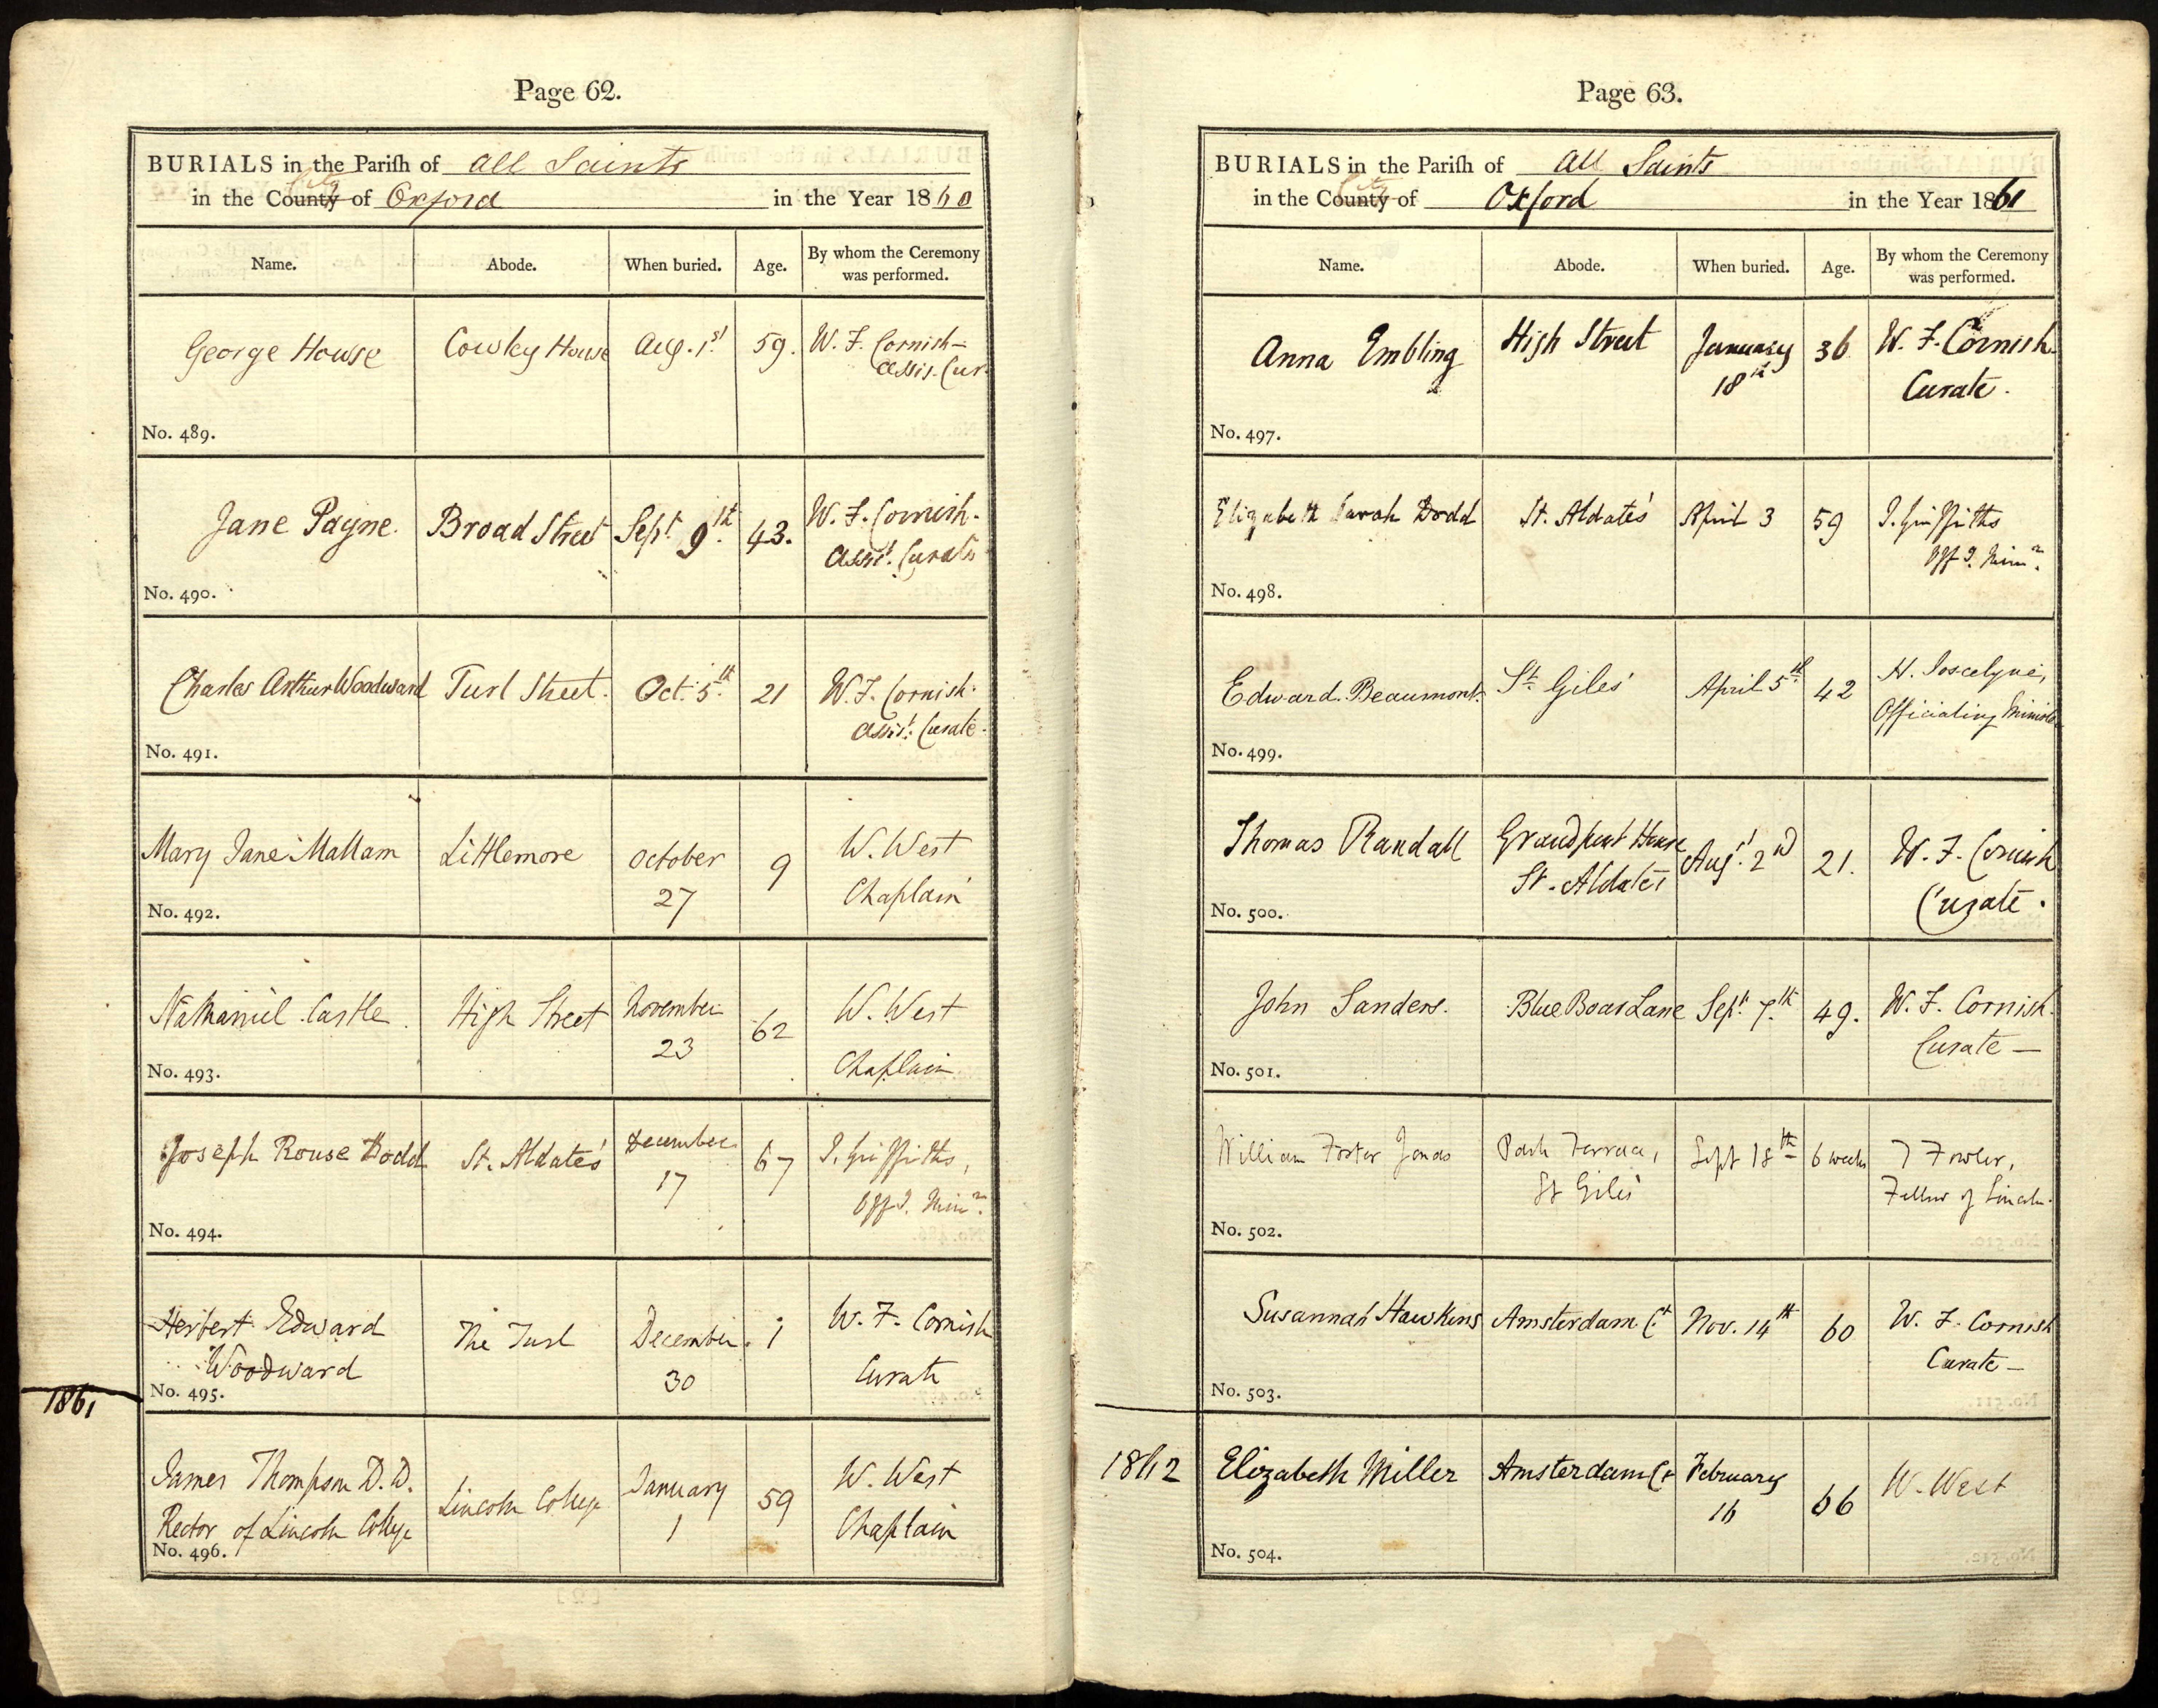 Page 62.
BURIALS in the Pariſh of All Saints
City
in the County of Oxford in the Year 1860
Name. Abode. When buried. Age. By whom the Ceremony
was performed.
George House Cowley House Aug. 1st. 59. W. F. Cornish—
Assis. Cur.
No. 489.
Jane Payne. Broad Street Sept. 9th. 43. W. F. Cornish.
Assist. Curate
No. 490.
Charles Arthur Woodward Turl Street. Oct. 5th. 21 W. F. Cornish.
Assist. Curate.
No. 491.
Mary Jane Mallam Littlemore October 9 W. West
27 Chaplain
No. 492.
Nathaniel Castle High Street November 62 W. West
23 Chaplain
No. 493.
Joseph Rouse Dodd St. Aldate's December 67 J. Griffiths,
17 Offg. Minr.
No. 494.
Herbert Edward The Turl December 1 W. F. Cornish
Woodward 30 Curate
No. 495.
1861
James Thompson D.D. Lincoln College January 59 W. West
Rector of Lincoln College 1 Chaplain
No. 496.
Page 63.
BURIALS in the Pariſh of All Saints
City
in the County of Oxford in the Year 1861
Name. Abode. When buried. Age. By whom the Ceremony
was performed.
Anna Embling High Street January 36 W. F. Cornish.
18th Curate.
No. 497.
Elizabeth Sarah Dodd St. Aldate's April 3 59 J. Griffiths
Offg. Minr.
No. 498.
Edward Beaumont. St. Giles' April 5th. 42 H. Joscelyne,
Officiating Minister
No. 499.
Thomas Randall Grandpont House Aug. 2d 21. W. F. Cornish
St. Aldates Curate.
No. 500.
John Sanders. Blue Boar Lane Sept. 7th. 49. W. F. Cornish.
Curate —
No. 501.
William Foster Jones Park Terrace, Sept 18th 6 weeks T Fowler,
St Giles' Fellow of Lincoln.
No. 502.
Susannah Hawkins Amsterdam Ct. Nov. 14th 60 W. F. Cornish
Curate —
No. 503.
1862 Elizabeth Miller Amsterdam Ct February 66 W. West
16
No. 504.